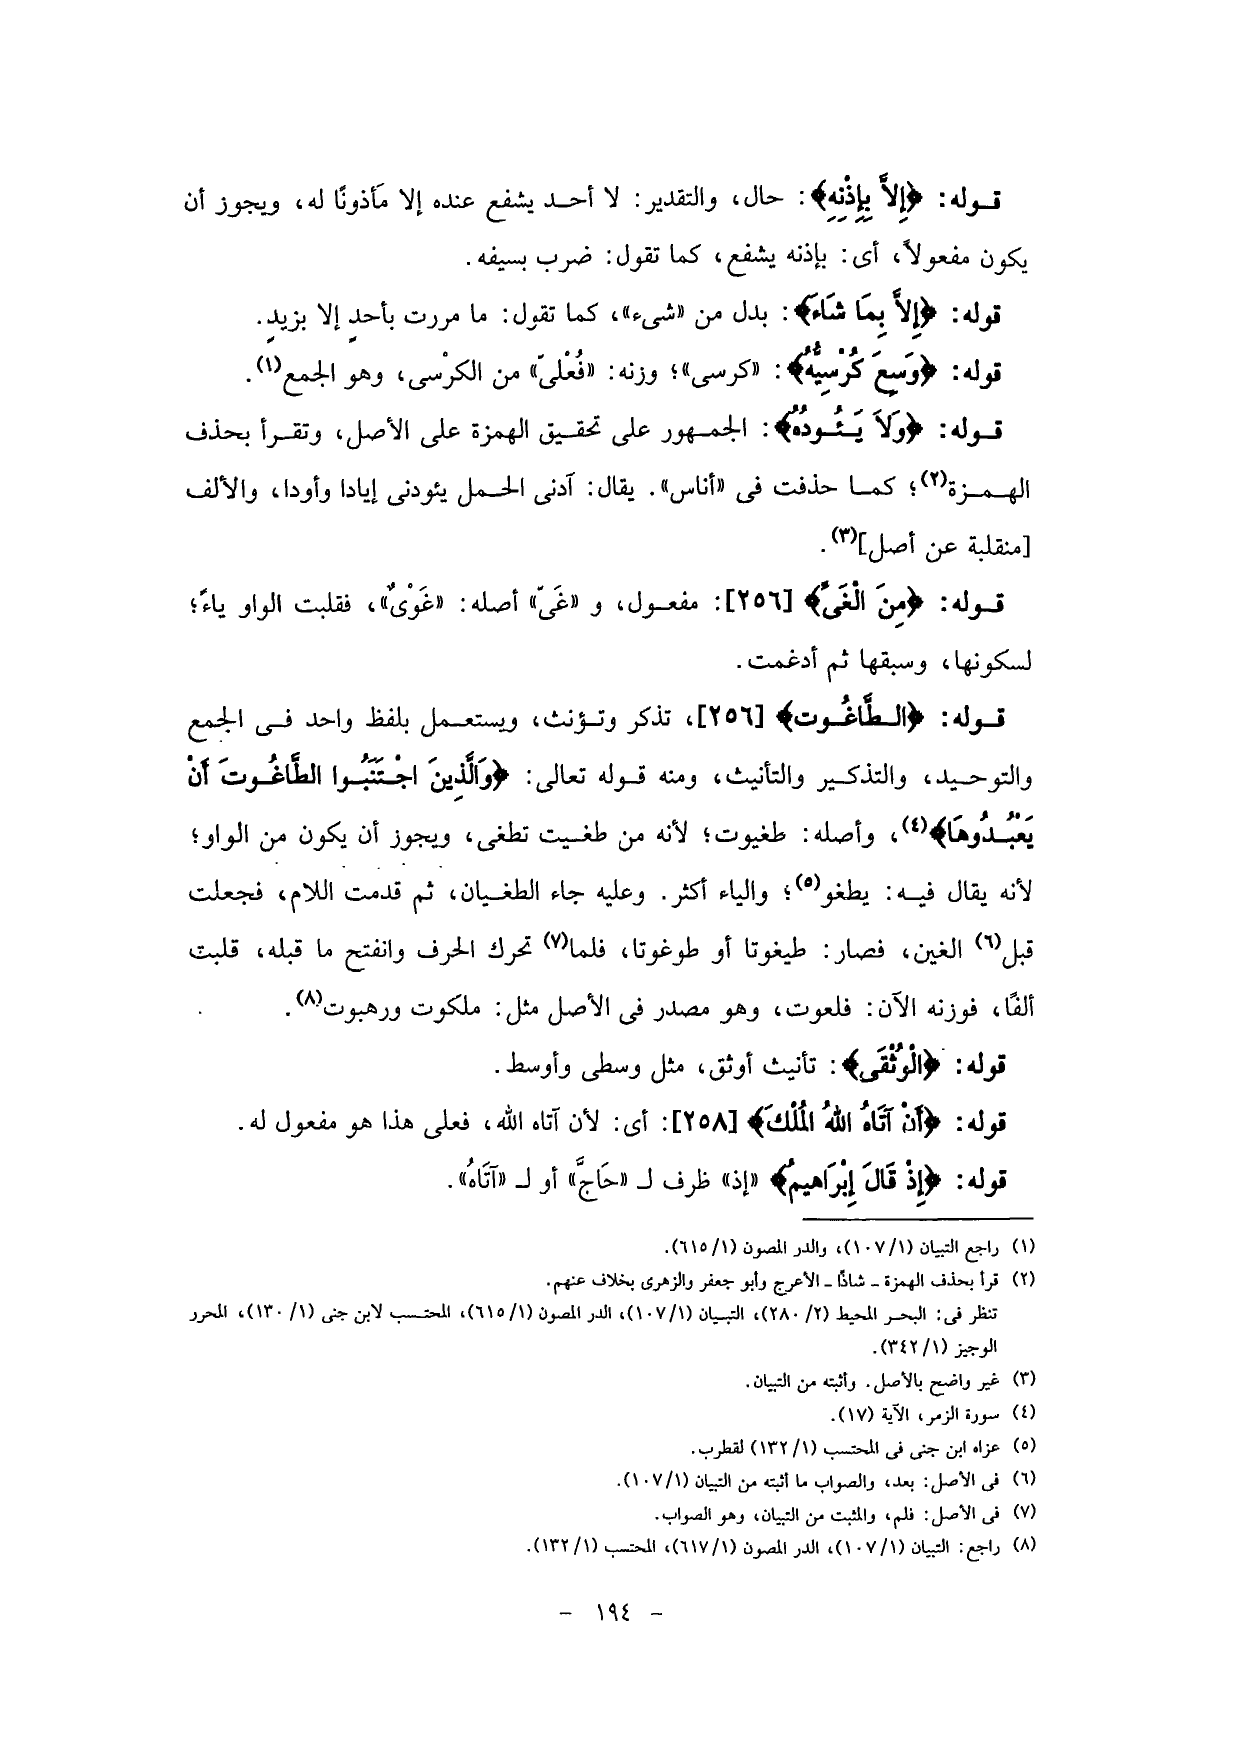 قوله: ﴿إِلاَّ بِإِذْنِهِ﴾: حال، والتقدير: لا أحد يشفع عنده إلا مَأذونًا له، ويجوز أن
يكون مفعولاً، أى: بإذنه يشفع، كما تقول: ضرب بسيفه.
قوله: ﴿إِلاَّ بِمَا شَاءَ﴾: بدل من «شىء»، كما تقول: ما مررت بأحدٍ إلا بزيدٍ.
قوله: ﴿وَسِعَ كُرْسِيُّهُ﴾: «كرسى»؛ وزنه: «فُعْلىّ» من الكرْسى، وهو الجمع(١).
قوله: ﴿وَلاَ يَئُودُهُ﴾: الجمهور على تحقيق الهمزة على الأصل، وتقرأ بحذف
الهمزة(٢)؛ كما حذفت فى «أناس». يقال: آدنى الحمل يئودنى إيادا وأودا، والألف
[منقلبة عن أصل](٣).
قوله: ﴿مِنَ الْغَىِّ﴾ [٢٥٦]: مفعول، و «غَىّ» أصله: «غَوْىٌ»، فقلبت الواو ياءً؛
لسكونها، وسبقها ثم أدغمت.
قوله: ﴿الطَّاغُوت﴾ [٢٥٦]، تذكر وتؤنث، ويستعمل بلفظ واحد فى الجمع
والتوحيد، والتذكير والتأنيث، ومنه قوله تعالى: ﴿وَالَّذِينَ اجْتَنَبُوا الطَّاغُوتَ أَنْ
يَعْبُدُوهَا﴾(٤)، وأصله: طغيوت؛ لأنه من طغيت تطغى، ويجوز أن يكون من الواو؛
لأنه يقال فيه: يطغو(٥)؛ والياء أكثر. وعليه جاء الطغيان، ثم قدمت اللام، فجعلت
قبل(٦) الغين، فصار: طيغوتا أو طوغوتا، فلما(٧) تحرك الحرف وانفتح ما قبله، قلبت
ألفًا، فوزنه الآن: فلعوت، وهو مصدر فى الأصل مثل: ملكوت ورهبوت(٨).
قوله: ﴿الْوُثْقَى﴾: تأنيث أوثق، مثل وسطى وأوسط.
قوله: ﴿أَنْ آتَاهُ اللهُ الْمُلْكَ﴾ [٢٥٨]: أى: لأن آتاه الله، فعلى هذا هو مفعول له.
قوله: ﴿إِذْ قَالَ إِبْرَاهِيمُ﴾ «إذ» ظرف لـ «حَاجَّ» أو لـ «آتَاهُ».
(١) راجع التبيان (١٠٧/١)، والدر المصون (٦١٥/١).
(٢) قرأ بحذف الهمزة ـ شاذًا ـ الأعرج وأبو جعفر والزهرى بخلاف عنهم.
تنظر فى: البحر المحيط (٢٨٠/٢)، التبيان (١٠٧/١)، الدر المصون (٦١٥/١)، المحتسب لابن جنى (١٣٠/١)، المحرر
الوجيز (٣٤٢/١).
(٣) غير واضح بالأصل. وأثبته من التبيان.
(٤) سورة الزمر، الآية (١٧).
(٥) عزاه ابن جنى فى المحتسب (١٣٢/١) لقطرب.
(٦) فى الأصل: بعد، والصواب ما أثبته من التبيان (١٠٧/١).
(٧) فى الأصل: فلم، والمثبت من التبيان، وهو الصواب.
(٨) راجع: التبيان (١٠٧/١)، الدر المصون (٦١٧/١)، المحتسب (١٣٢/١).
- ١٩٤ -